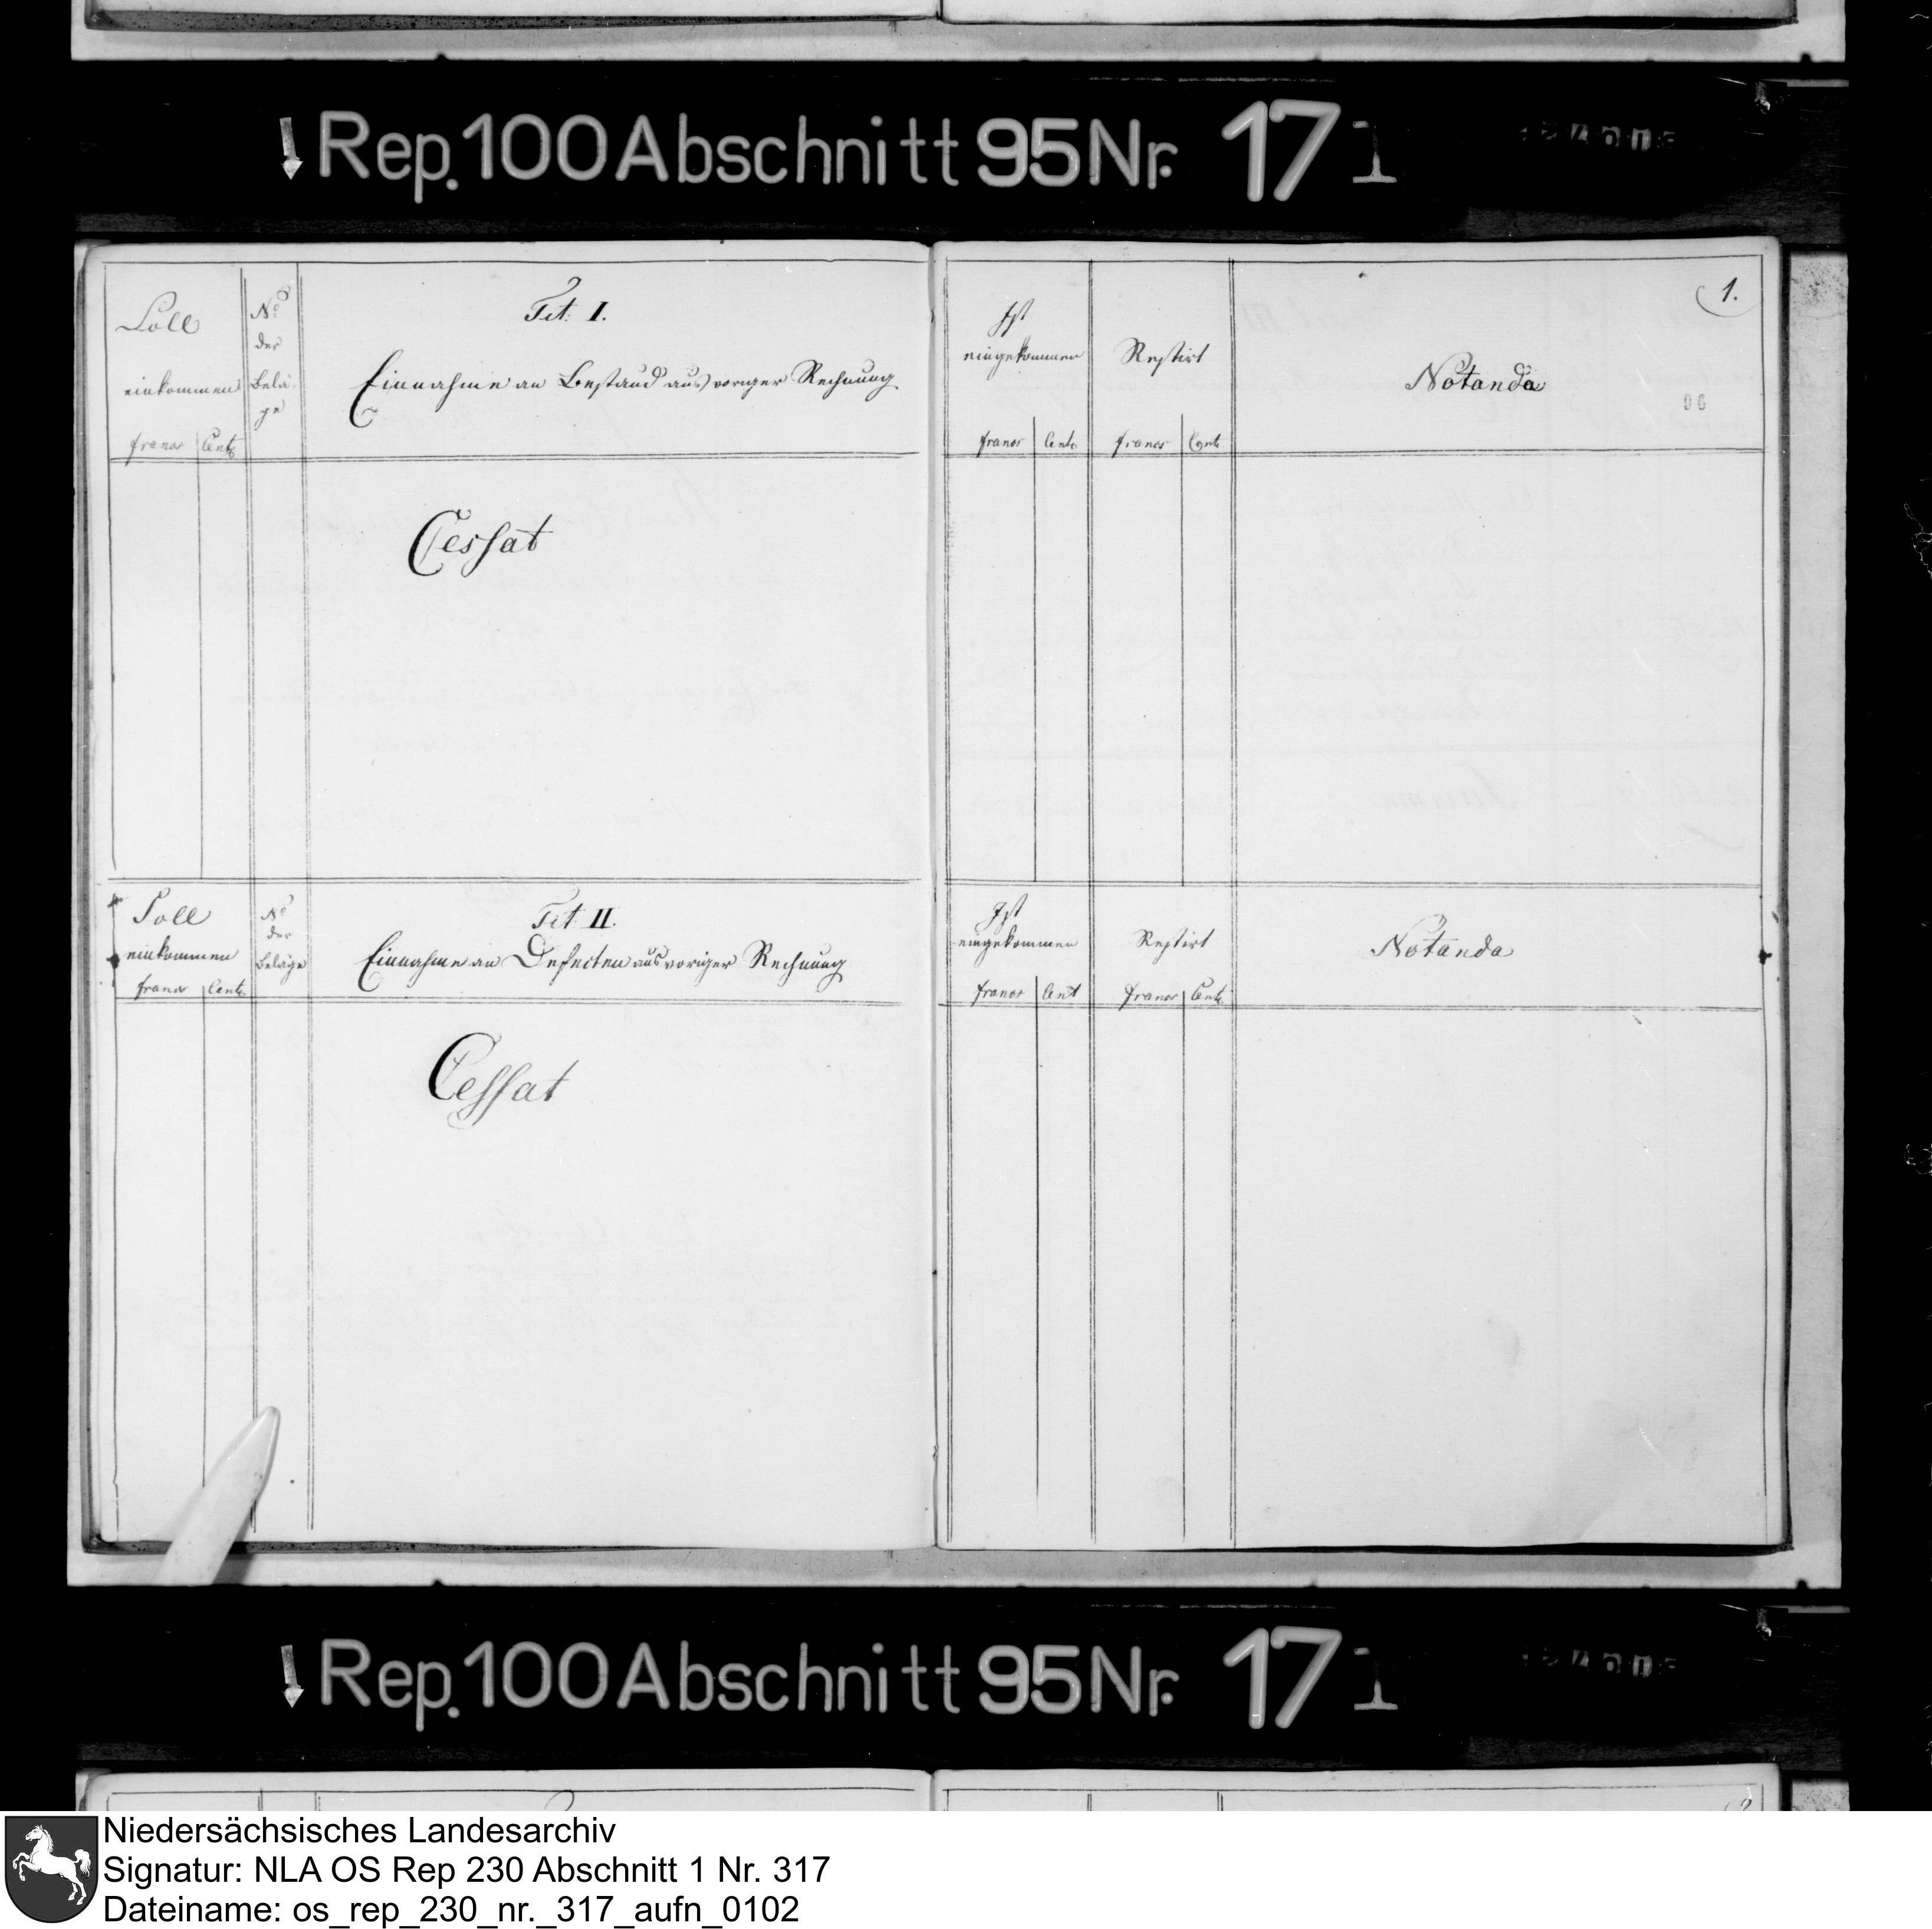 Rep. 100 Abschnitt 95 Nr. 17 1
Soll
einkommen
francs Cents
No
der
Belä-
ge
Tit: I.
Einnahme an Bestand aus voriger Rechnung
Cessat
Ist
eingekommen
francs Cents
Restirt
francs Cents
Notanda
1.
96
Soll
einkommen
francs Cents
No
der
Beläge
Tit II.
Einnahme an Defecten aus voriger Rechnung
Cessat
Ist
eingekommen
francs Cent
Restirt
francs Cents
Notanda
Rep. 100 Abschnitt 95 Nr. 17 1
2
Niedersächsisches Landesarchiv
Signatur: NLA OS Rep 230 Abschnitt 1 Nr. 317
Dateiname: os_rep_230_nr._317_aufn_0102